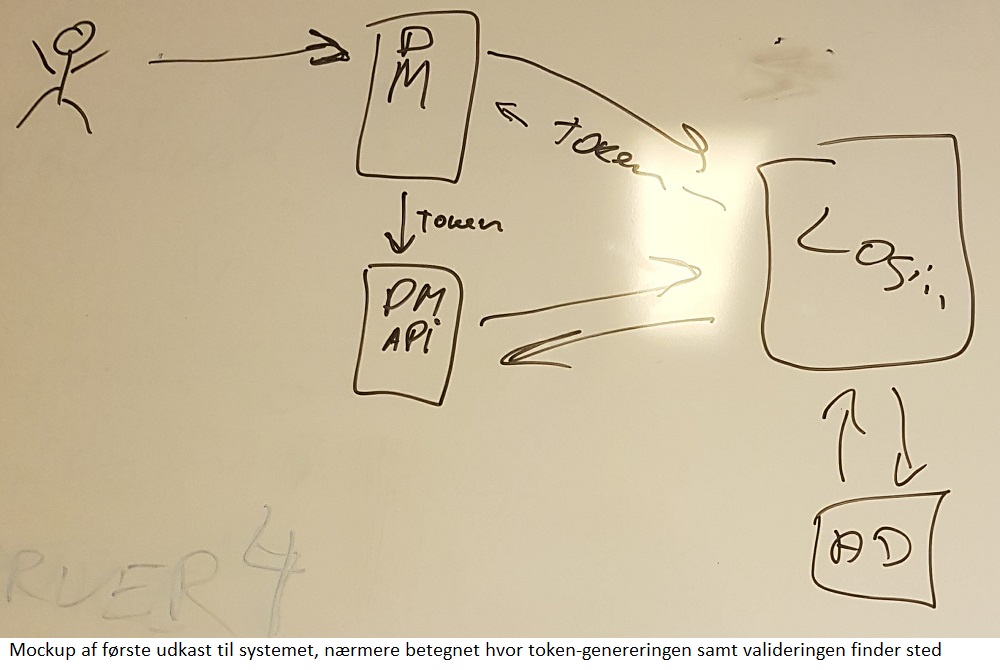 D
M
Token
Token
DM
API
Login
AD
RVER 4
Mockup af første udkast til systemet, nærmere betegnet hvor token-genereringen samt valideringen finder sted